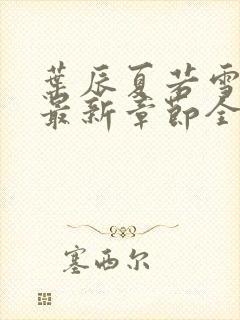 葉辰夏若雪
最新章節全
塞西尔